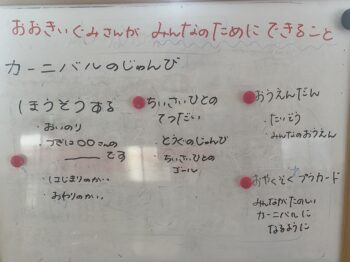 おおきいぐみさんが みんなのためにできること
カーニバルのじゅんび
ほうそうする
・おいのり
・つぎは〇〇さんの
――です
・はじまりのかい
・おわりのかい
ちいさいひとの
てつだい
・とうぐのじゅんび
・ちいさいひとの
ゴール
おうえんだん
・たいそう
・みんなのおうえん
おやくそくプラカード
みんながたのしい
カーニバルに
なるように